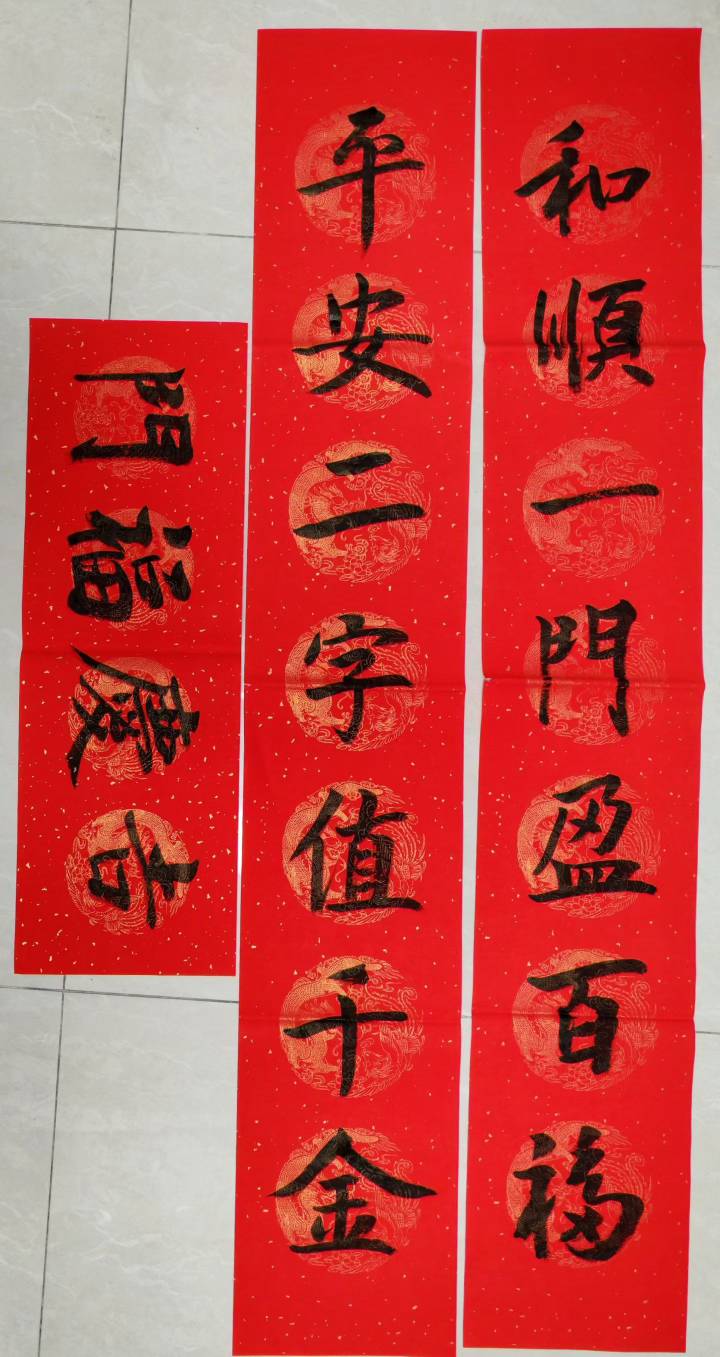 和順一門盈百福
平安二字值千金
吉慶福門